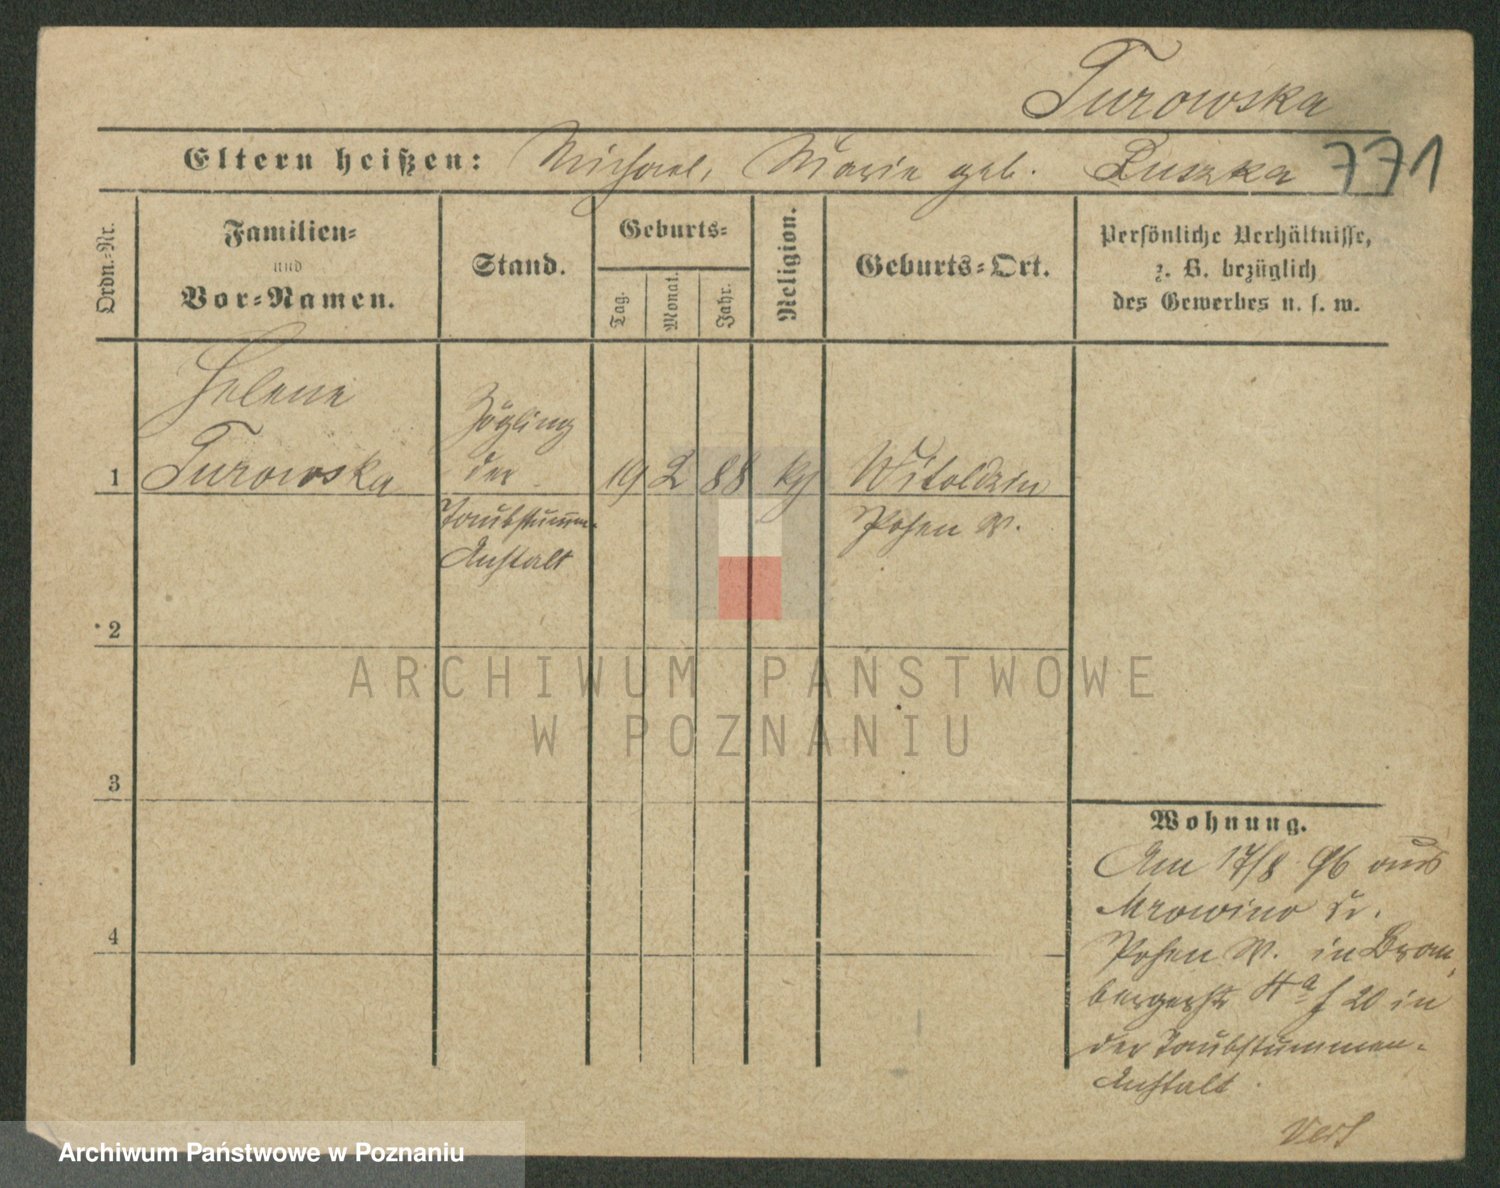 Turowska
Eltern heißen: Michael, Marie geb. Luszka 771
Ordn.-Nr.
Familien-
und
Vor-Namen.
Stand.
Geburts-
Tag.
Monat.
Jahr.
Religion.
Geburts-Ort.
Persönliche Verhältnisse,
z. B. bezüglich
des Gewerbes u. s. w.
Helene
Zögling
1 Turowska der 19 2 88 kg Witoldzin
Taubstummen-
Posen W.
Anstalt
2
3
4
Wohnung.
Am 17/8 96 aus
Mrowino Kr.
Posen W. in Brom-
bergerstr 4a f 20 in
der Taubstummen-
Anstalt.
ARCHIWUM PAŃSTWOWE
W POZNANIU
Archiwum Państwowe w Poznaniu